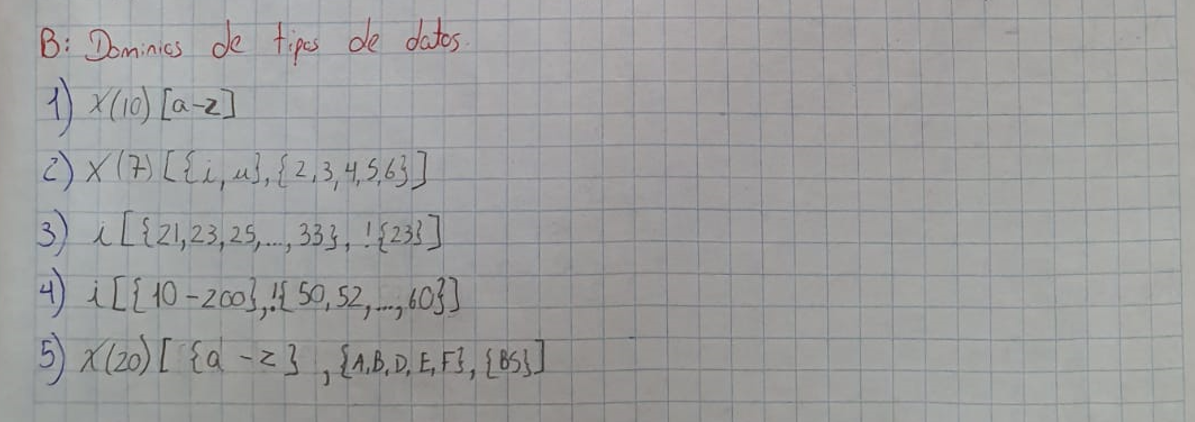 B: Dominios de tipos de datos.
1) X(10) [a-z]
2) X(7) [{i,u},{2,3,4,5,6}]
3) i [{21,23,25,...,33}, !{23}]
4) i [{10-200},!{50,52,...,60}]
5) X(20) [ {a - z} , {A,B,D,E,F}, {BS}]